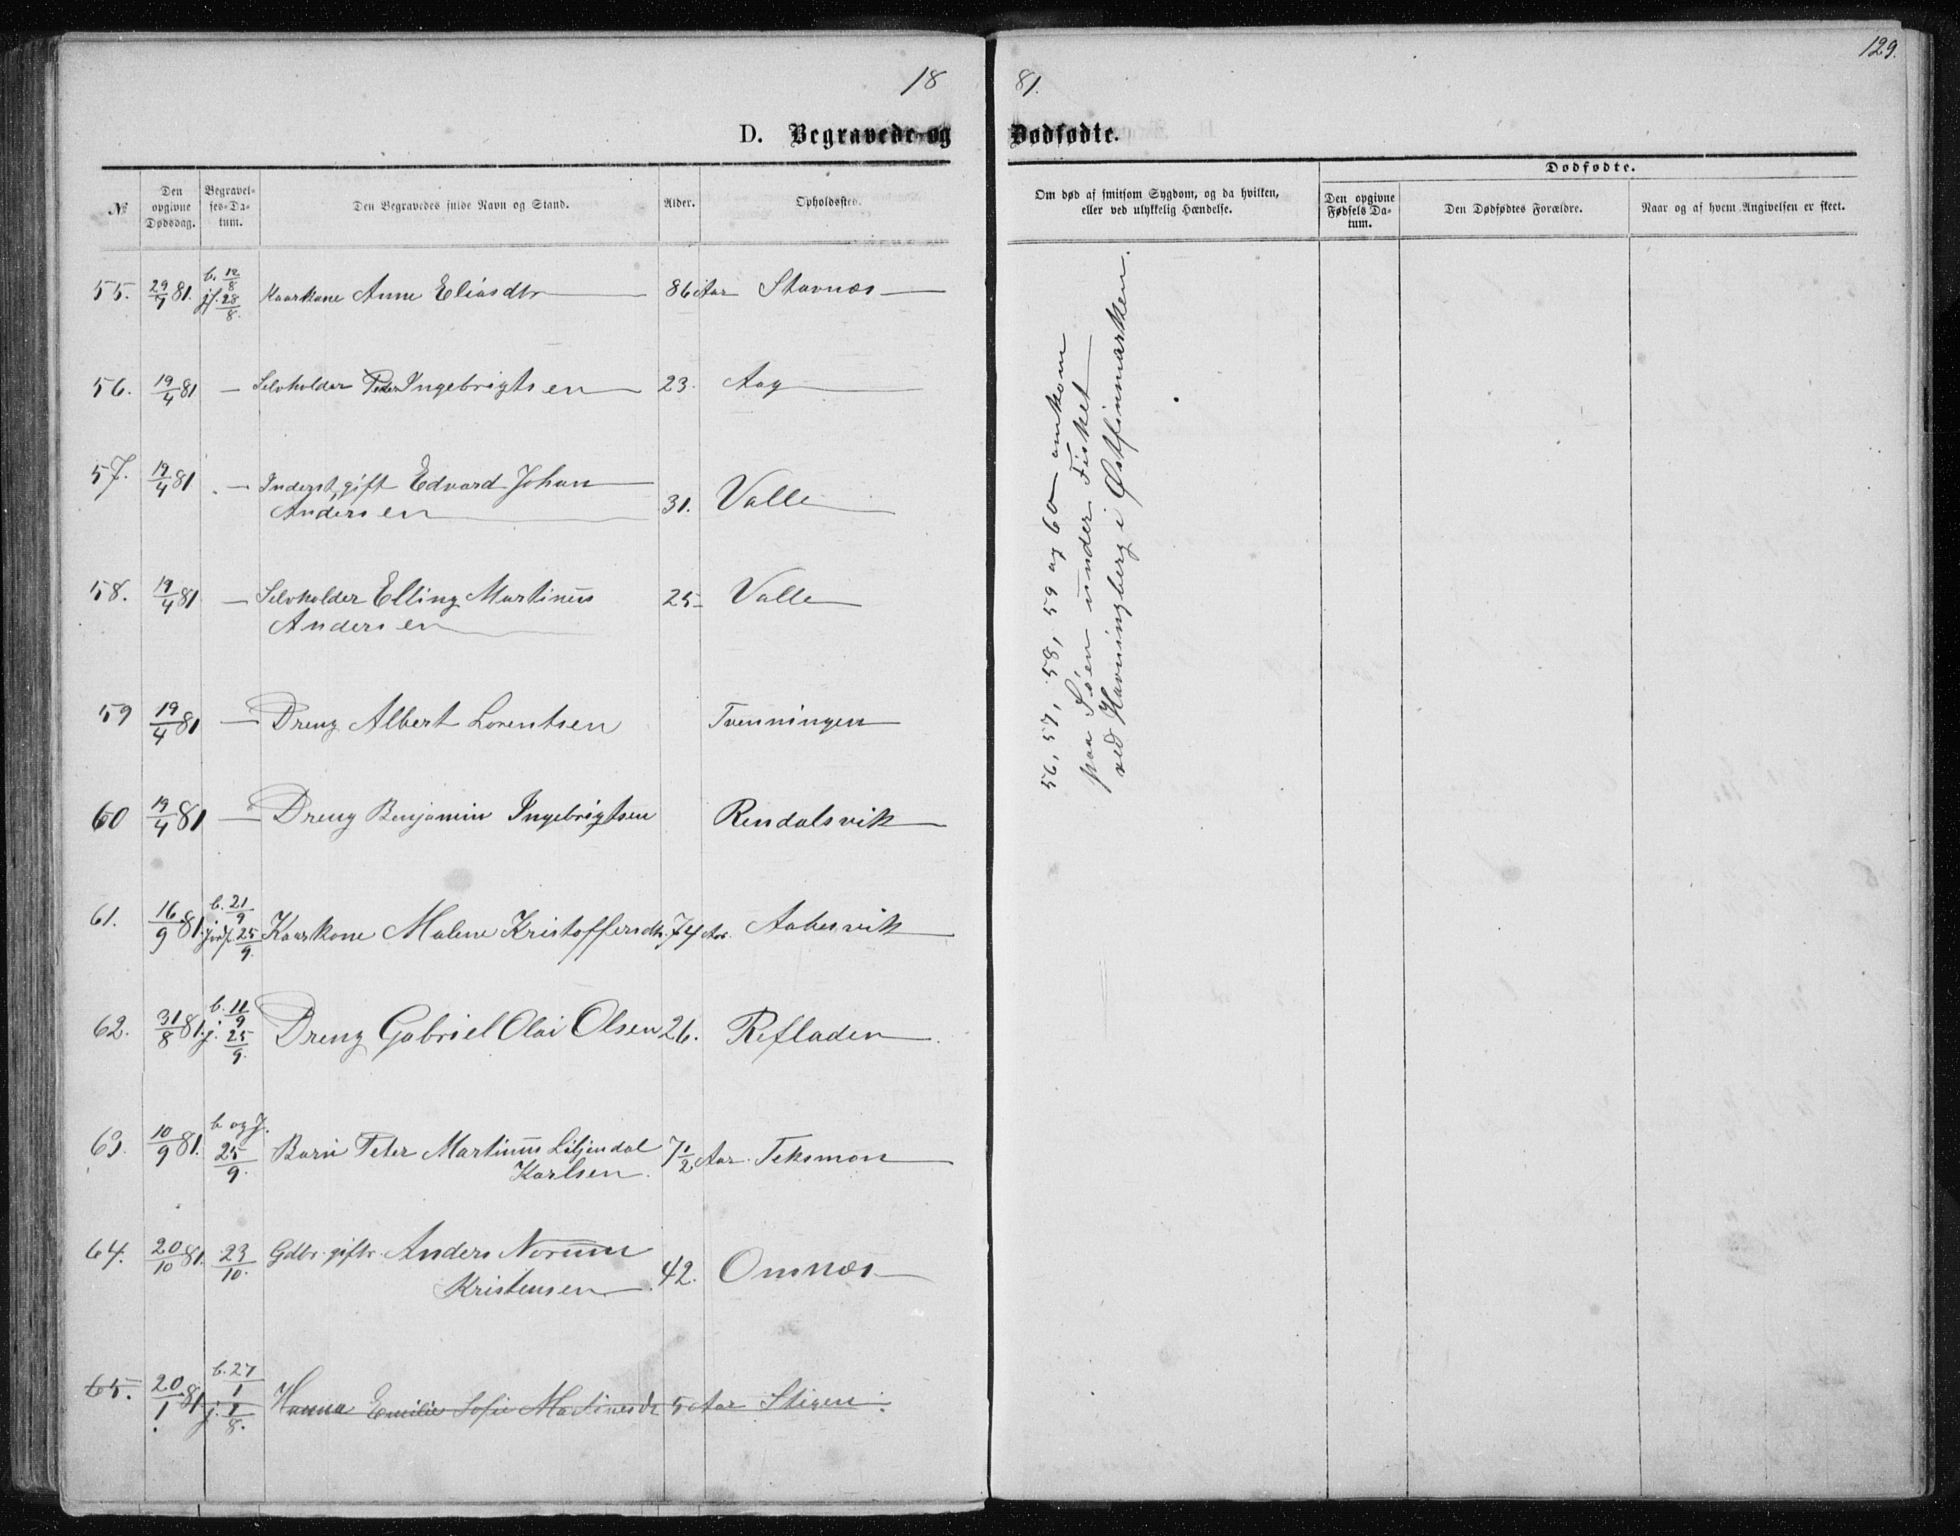 18 81.
129.
D. Begravede og Dødfødte.
№ Den opgivne Dødsdag. Begravelses-Datum. Den Begravedes fulde Navn og Stand. Alder. Opholdssted. Om død af smitsom Sygdom, og da hvilken, eller ved ulykkelig Hændelse. Dødfødte. Den opgivne Fødsels Datum. Den Dødfødtes Forældre. Naar og af hvem Angivelsen er skeet.
55. 29/7 81. b. 12/8 jf. 28/8. Kaarkone Anne Eliasdtr 86 Aar Stavnæs
56. 19/4 81 — Selvholder Peder Ingebrigtsen 23. Aag
57. 19/4 81 — Inderst, gift Edvard Johan
Andersen 31. Valle
58. 19/4 81 — Selvholder Elling Martinus 25 Valle
Andersen
59 19/4 81 — Dreng Albert Lorentsen Tvenningen
60 19/4 81 — Dreng Benjamin Ingebrigtsen Rendalsvik
61. 16/9 81. b. 21/9 jordf. 25/9. Kaarkone Malene Kristoffersdtr. 74 Aar. Aabesvik
62. 31/8 81. b. 11/9 j. 25/9. Dreng Gabriel Olai Olsen 26. Refladen
63. 10/9 81. b og J. 25/9. Barn Peter Martinus Liljendal 7 1/2 Aar. Teksmon
Karlsen
64. 20/10 81. 23/10. Gdbr. gift. Anders Norum
Kristensen 42. Omnæs
65. 20/1 81 b. 27/1 j. 1/8. Hanna Emilie Sofie Martinesdr 5 Aar Stigen
56, 57, 58, 59 og 60 omkom
paa Søen under Fisket
ved Havningberg i Østfinmarken.